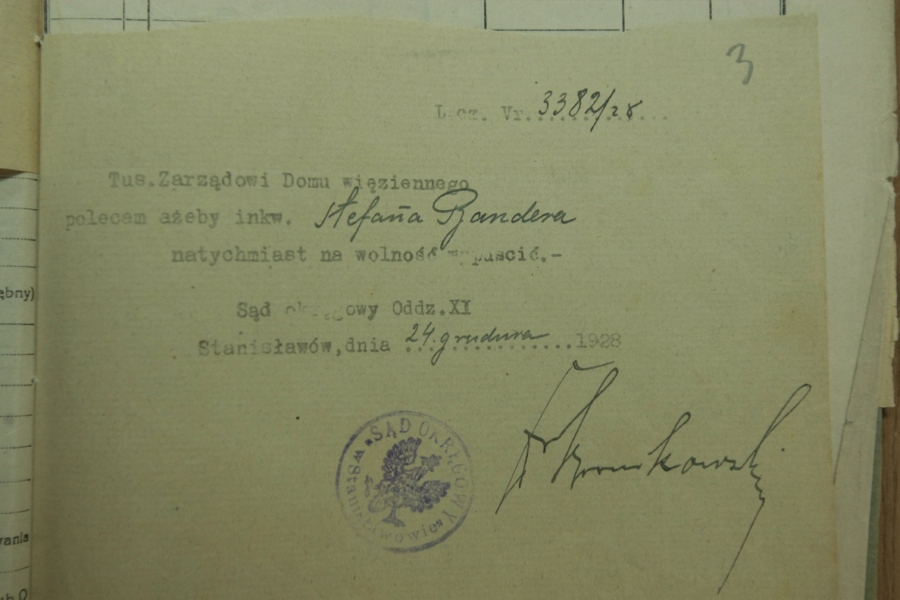 3
L.cz. Vr. 3382/28
Tus.Zarządowi Domu więziennego
polecam ażeby inkw. Stefana Bandera
natychmiast na wolność wypuścić.-
Sąd okręgowy Oddz.XI
Stanisławów,dnia 24.grudnia 1928
SĄD OKRĘGOWY
w Stanisławowie
ębny)
wania